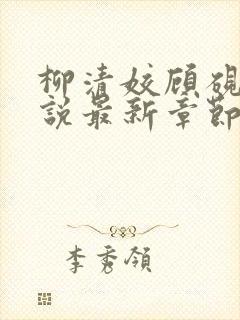 柳清姣顾砚
说最新章节
李秀领